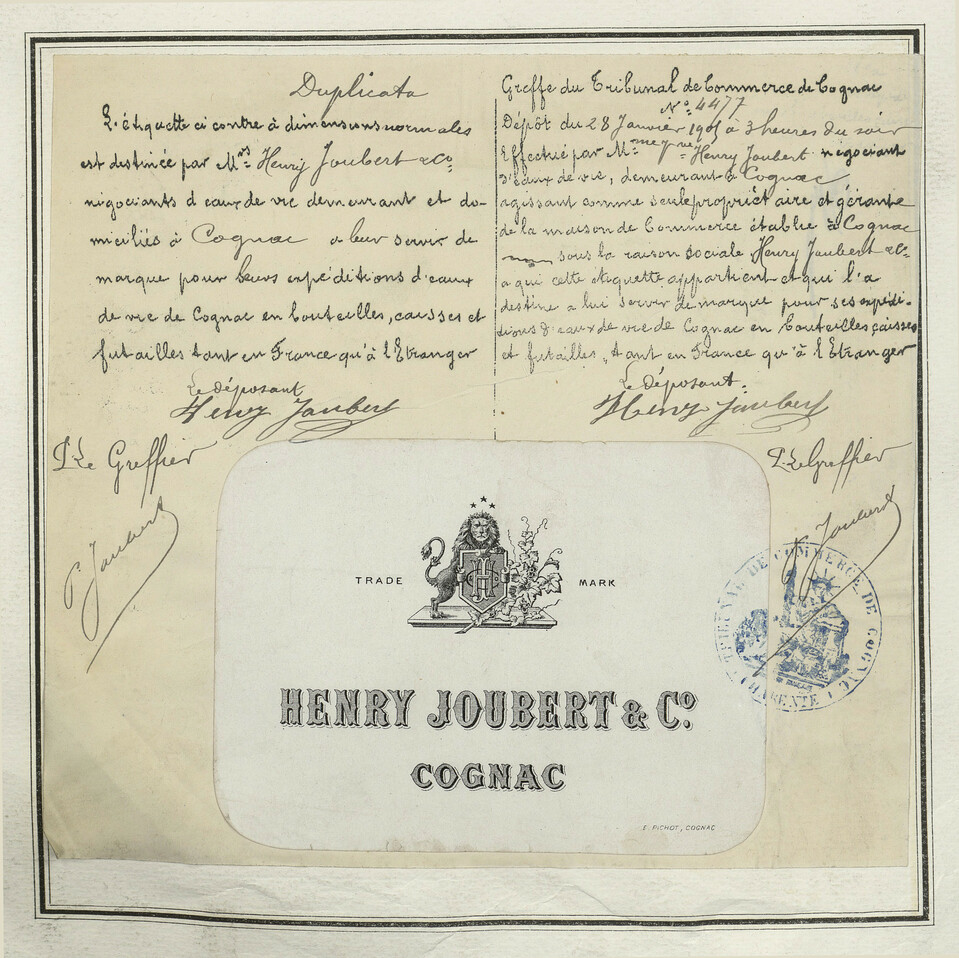 Duplicata
L'étiquette ci contre à dimensions normales
est destinée par Mrs Henry Joubert & Co
négociants d'eaux de vie demeurant et do-
miciliés à Cognac a leur servir de
marque pour leurs expéditions d'eaux
de vie de Cognac en bouteilles, caisses et
futailles tant en France qu'à l'Etranger
Le Déposant
Henry Joubert
Le Greffier
Joubert
Greffe du Tribunal de Commerce de Cognac
No 4477
Dépôt du 28 Janvier à 3 heures du soir
Effectué par Henry Joubert négociant
d'eaux de vie, demeurant à Cognac
agissant comme seule propriétaire et gérante
de la maison de Commerce établie à Cognac
sous la raison sociale Henry Joubert & Co
a qui cette étiquette appartient et qui l'a
destine a lui servir de marque pour ses expédi-
tions d'eaux de vie de Cognac en bouteilles caisses
et futailles, tant en France qu'à l'Etranger
Le Déposant.
Henry Joubert
Le Greffier
Joubert
TRIBUNAL DE COMMERCE DE COGNAC
CHARENTE
TRADE MARK
H
HENRY JOUBERT & Co.
COGNAC
E. PICHOT, COGNAC